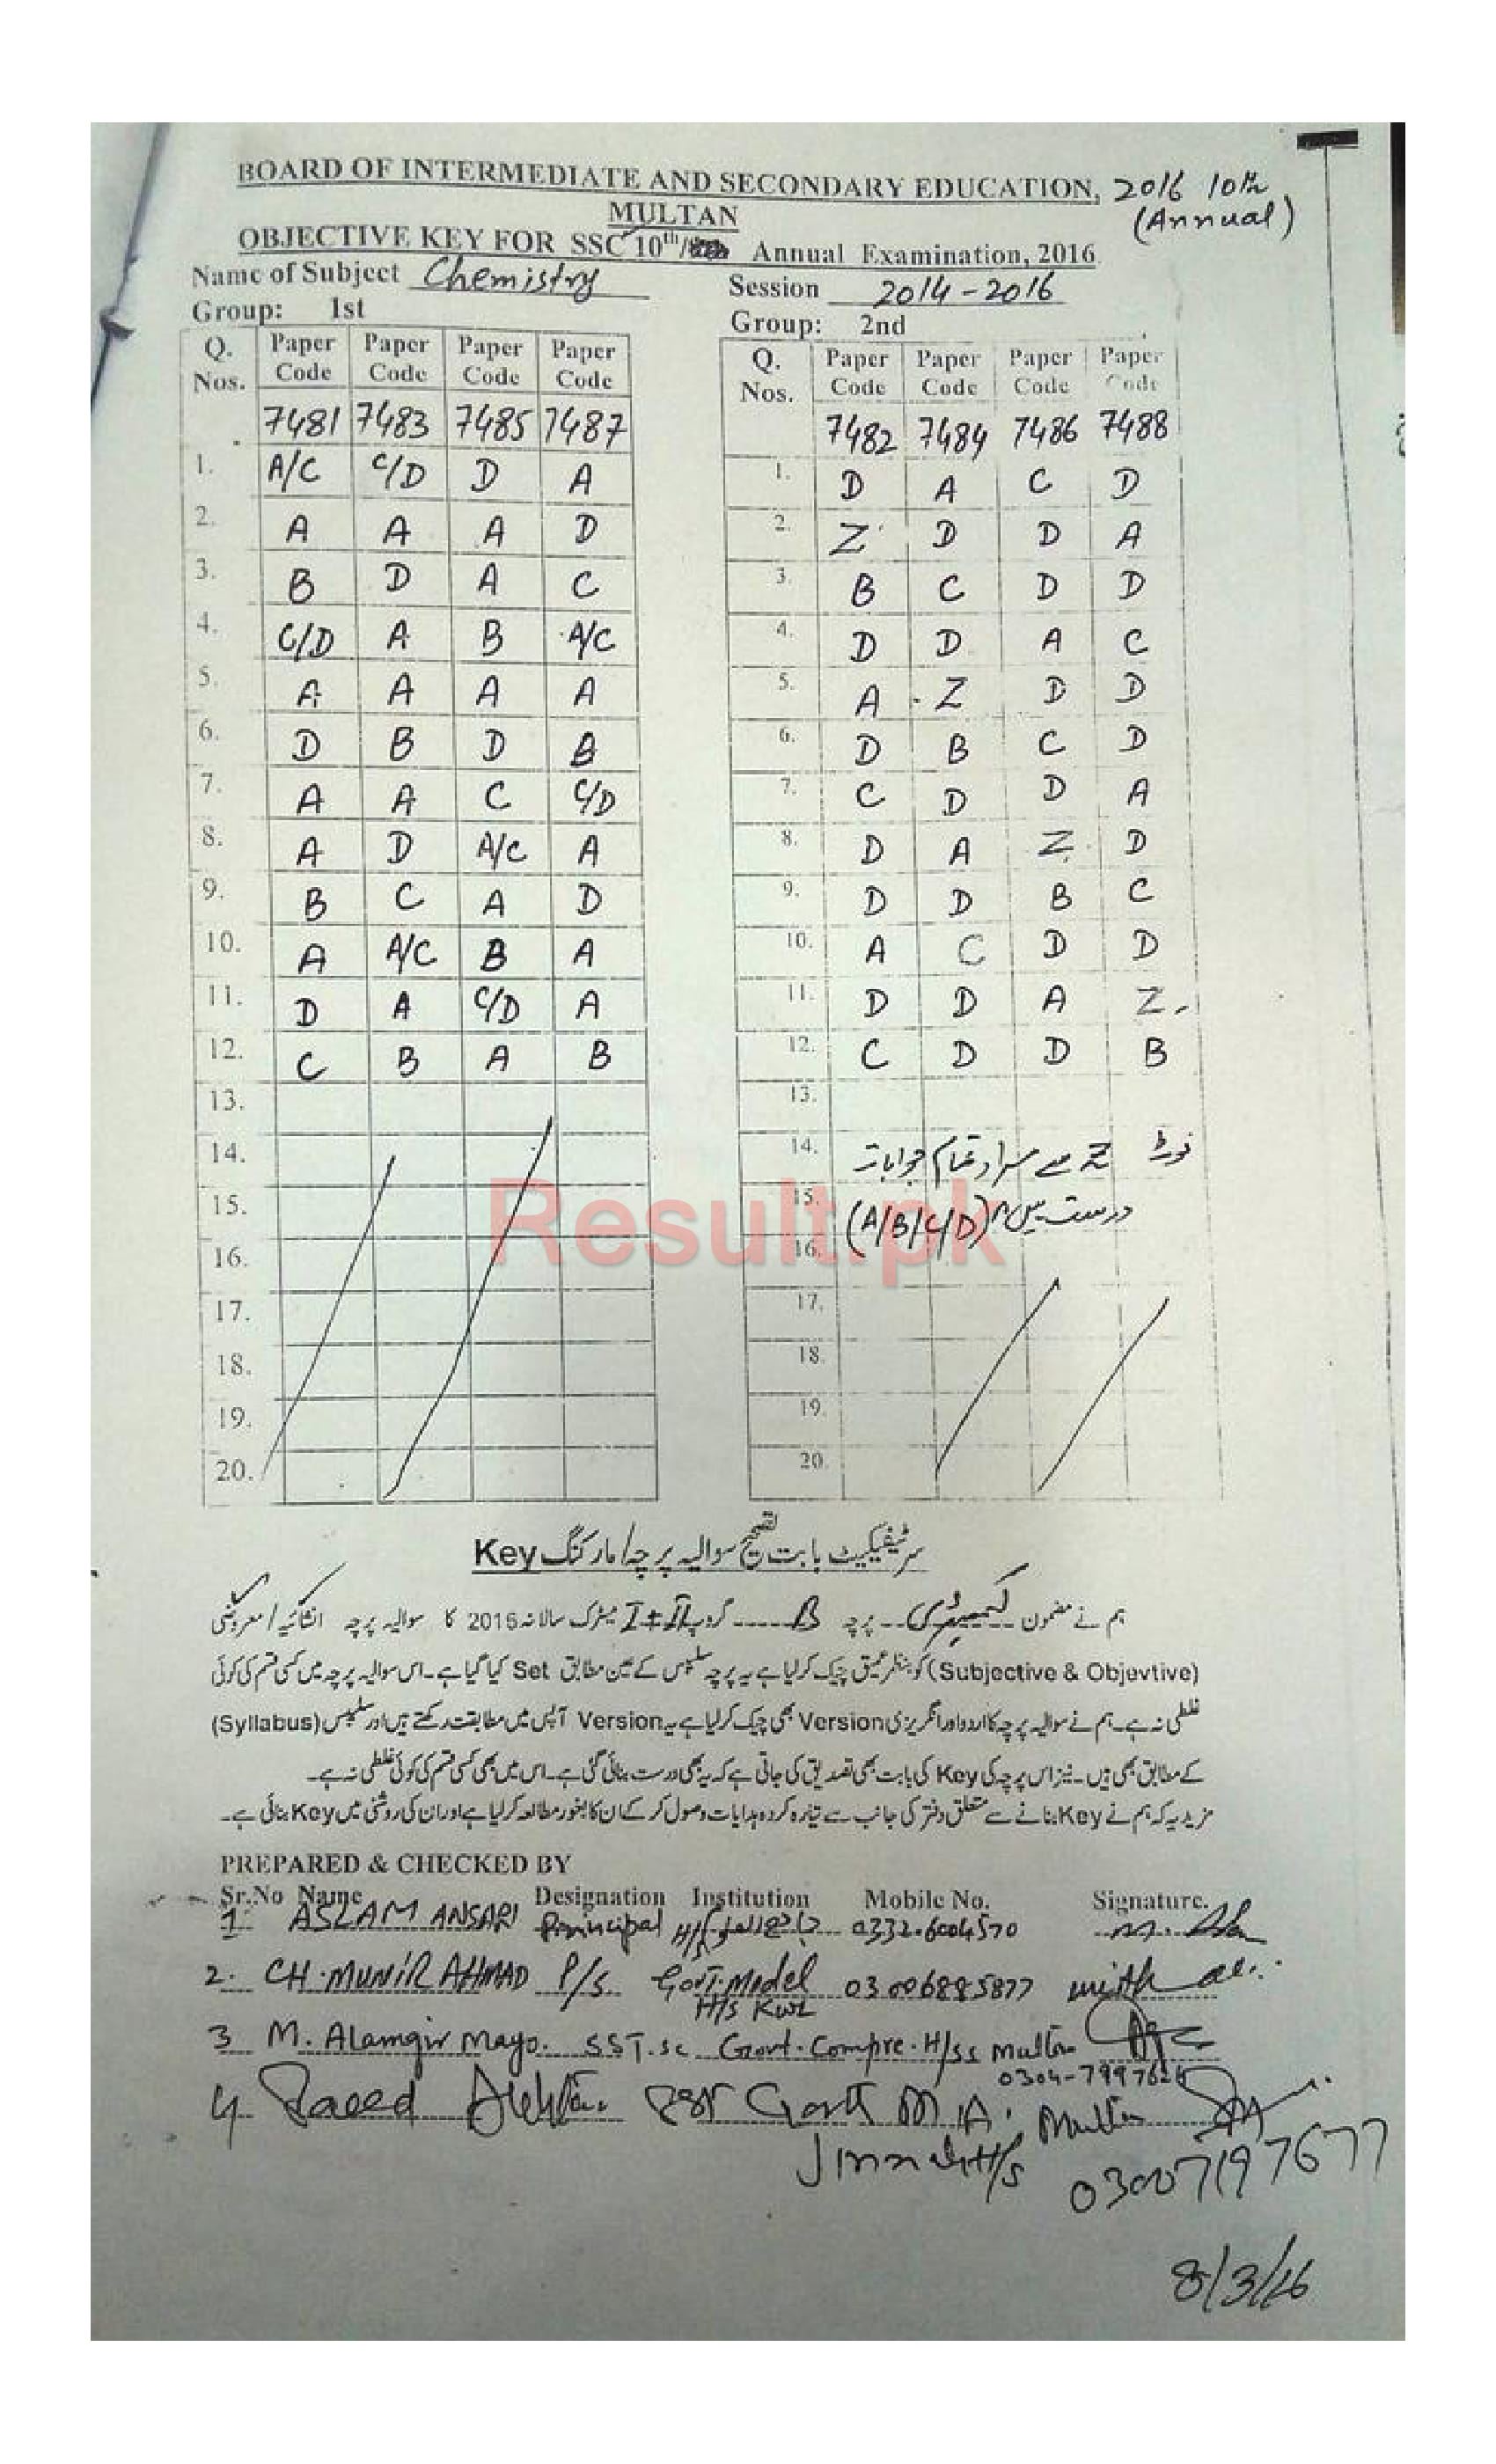 BOARD OF INTERMEDIATE AND SECONDARY EDUCATION, 2016 10th
MULTAN (Annual)
OBJECTIVE KEY FOR SSC 10th/ Annual Examination, 2016
Name of Subject Chemistry Session 2014-2016
Group: 1st Group: 2nd
Q. Nos. Paper Code Paper Code Paper Code Paper Code Q. Nos. Paper Code Paper Code Paper Code Paper Code
7481 7483 7485 7487 7482 7484 7486 7488
1. A/C C/D D A 1. D A C D
2. A A A D 2. Z D D A
3. B D A C 3. B C D D
4. C/D A B A/C 4. D D A C
5. A A A A 5. A Z D D
6. D B D B 6. D B C D
7. A A C C/D 7. C D D A
8. A D A/C A 8. D A Z D
9. B C A D 9. D D B C
10. A A/C B A 10. A C D D
11. D A C/D A 11. D D A Z
12. C B A B 12. C D D B
13. 13.
14. 14. نوٹ Z سے مراد تمام جوابات
15. 15. درست ہیں (A/B/C/D)
16. 16.
17. 17.
18. 18.
19. 19.
20. 20.
Result.pk
سرٹیفیکیٹ بابت تصحیح سوالیہ پرچہ/مارکنگ Key
ہم نے مضمون کیمسٹری پرچہ B گروپ I+II میٹرک سالانہ 2016 کا سوالیہ پرچہ انشائیہ/معروضی
(Subjective & Objevtive) کو بنظر عمیق چیک کرلیا ہے یہ پرچہ سلیبس کے عین مطابق Set کیا گیا ہے۔ اس سوالیہ پرچہ میں کسی قسم کی کوئی
غلطی نہ ہے۔ ہم نے سوالیہ پرچہ کا اردو اور انگریزی Version بھی چیک کرلیا ہے یہ Version آپس میں مطابقت رکھتے ہیں اور سلیبس (Syllabus)
کے مطابق بھی ہیں۔ نیز اس پرچہ کی Key کی بابت بھی تصدیق کی جاتی ہے کہ یہ بھی درست بنائی گئی ہے۔ اس میں بھی کسی قسم کی کوئی غلطی نہ ہے۔
مزید یہ کہ ہم نے Key بنانے سے متعلق دفتر کی جانب سے تیار کردہ ہدایات وصول کر کے ان کا بغور مطالعہ کرلیا ہے اور ان کی روشنی میں Key بنائی ہے۔
PREPARED & CHECKED BY
Sr.No Name Designation Institution Mobile No. Signature.
1. ASLAM ANSARI Principal 0332-6004570
2. CH. MUNIR AHMAD P/S Govt. Model H/S KWL 03006885877
3 M. Alamgir Mayo. SST.sc Govt. Compre. H/SS Multan
0304-7997626
4. Saeed Govt M.A. Multan
Jinnah H/S 03007197677
8/3/16